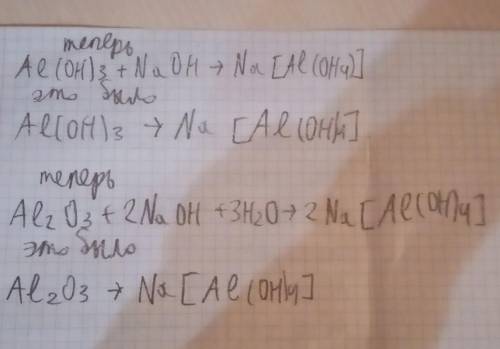 теперь
Al(OH)3 + NaOH → Na[Al(OH4)]
это было
Al(OH)3 → Na [Al(OH)4]
теперь
Al2O3 + 2NaOH + 3H2O → 2Na[Al(OH)4]
это было
Al2O3 → Na[Al(OH)4]